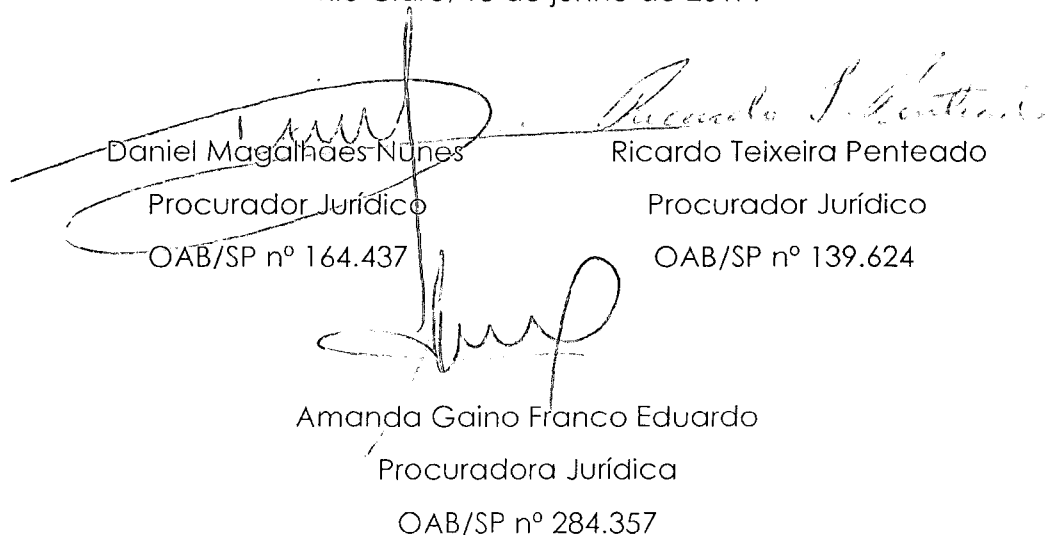 Daniel Magalhães Nunes
Procurador Jurídico
OAB/SP nº 164.437
Ricardo Teixeira Penteado
Procurador Jurídico
OAB/SP nº 139.624
Amanda Gaino Franco Eduardo
Procuradora Jurídica
OAB/SP nº 284.357